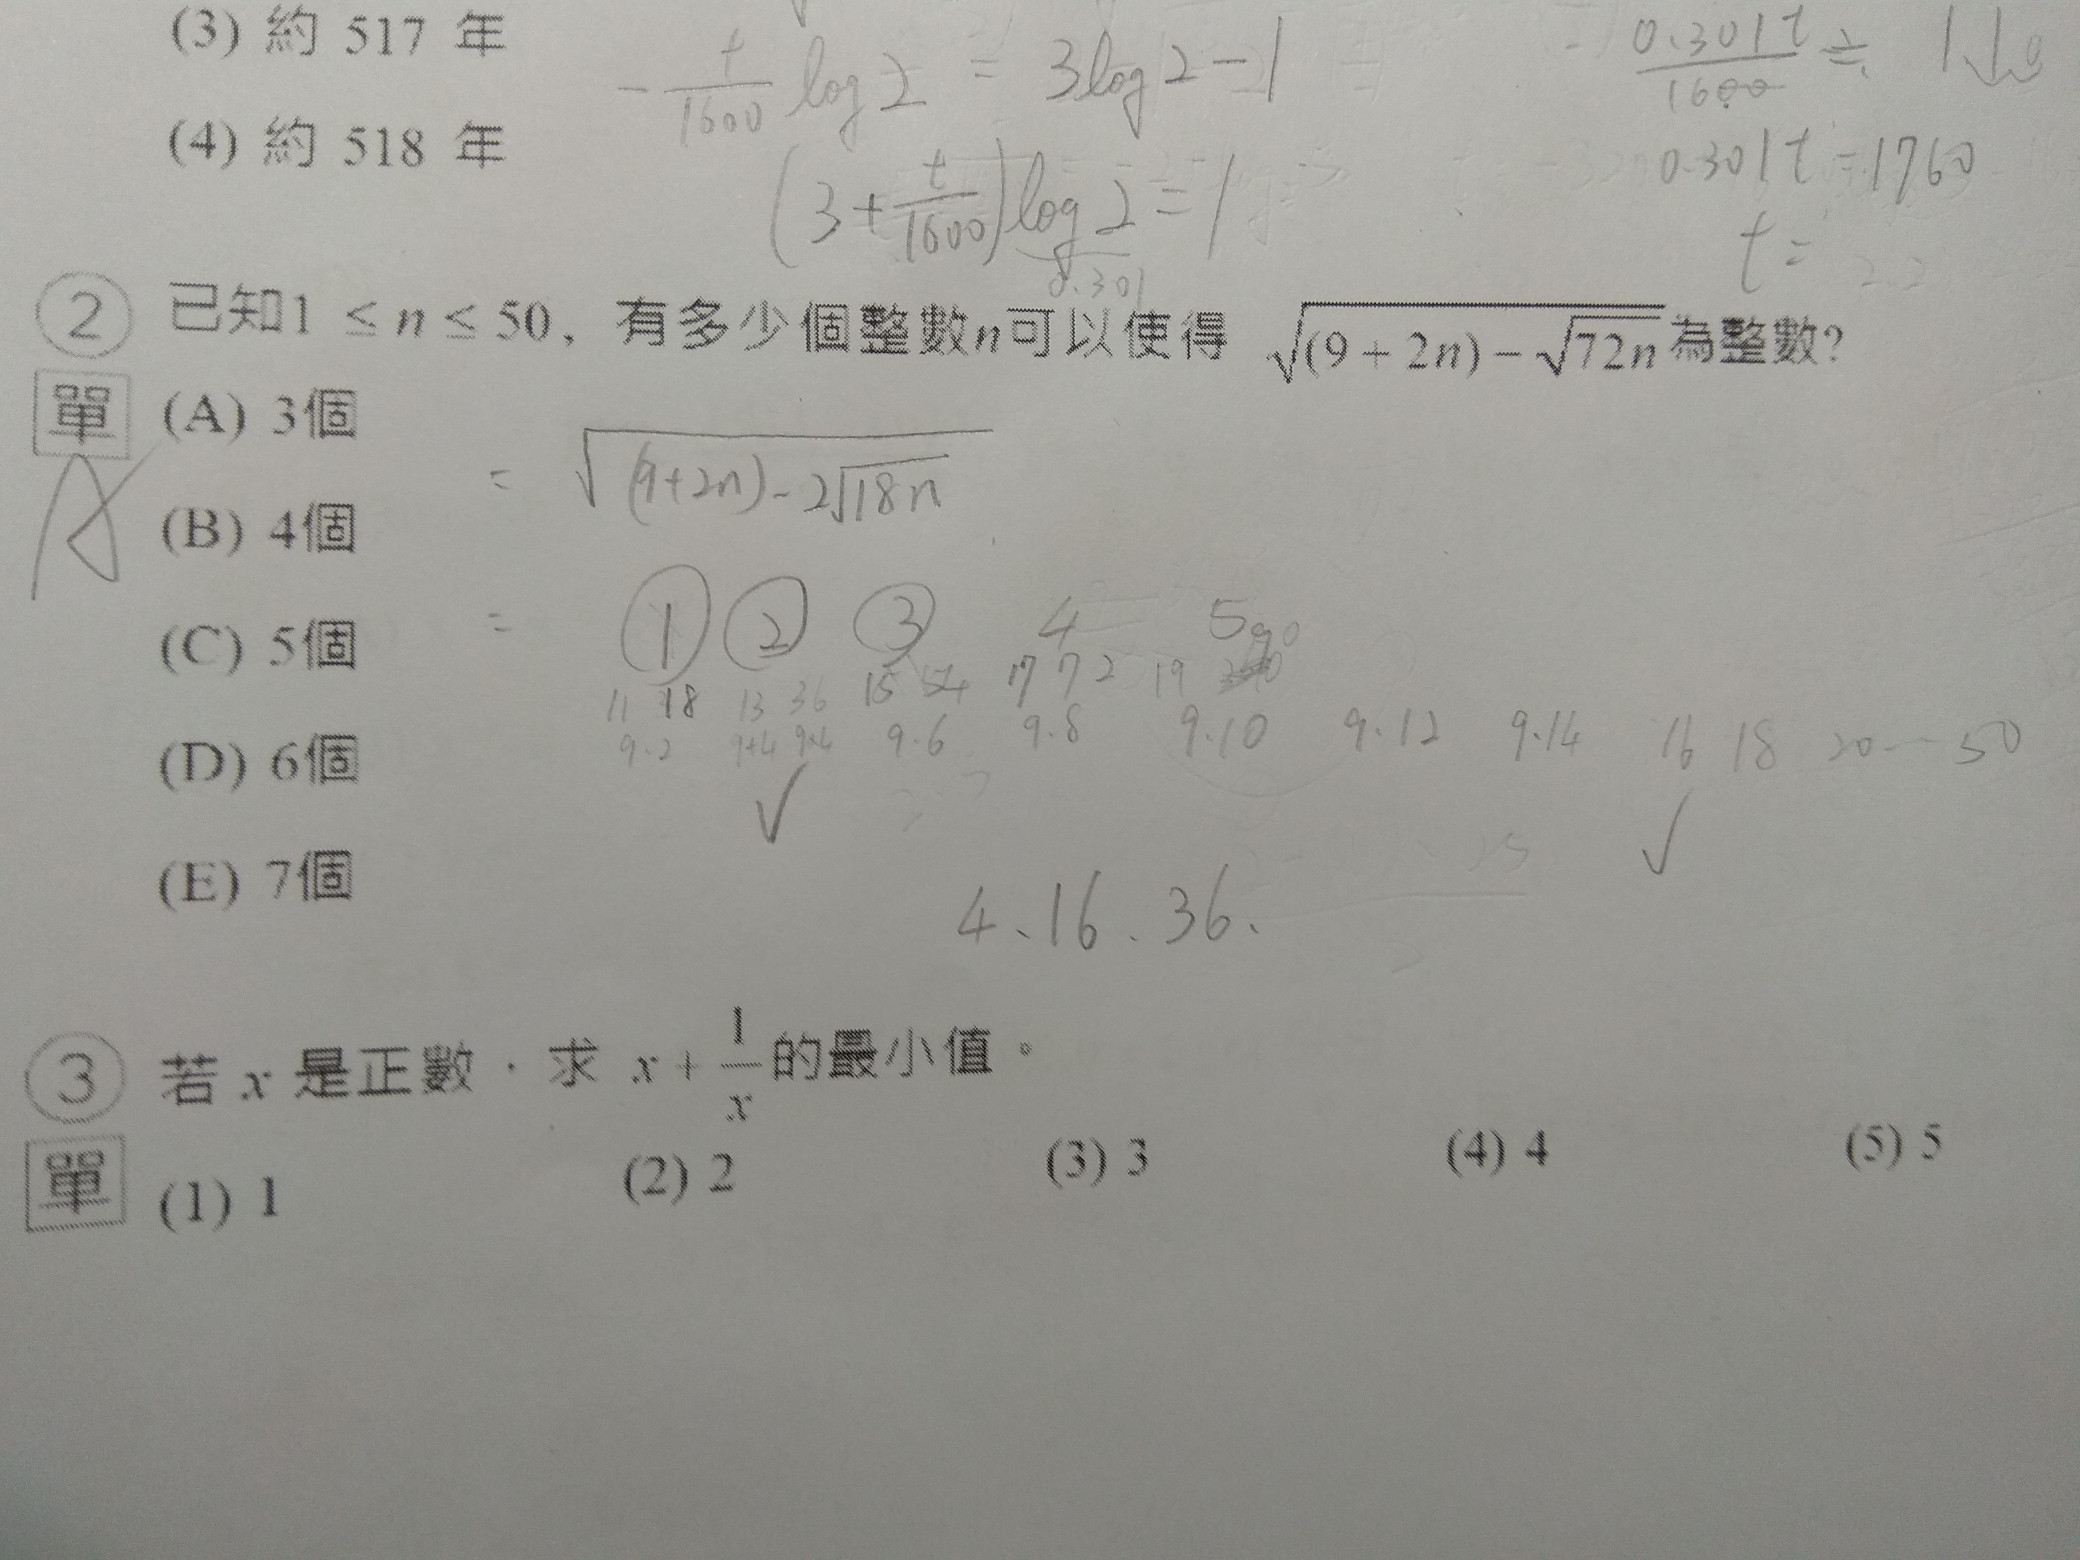 (3) 約 517 年
(4) 約 518 年
-t/1600 log2 = 3log2-1
(3+t/1600)log2=1
0.301
0.301t/1600 ≒
0.301t=1760
t=
② 已知1 ≤ n ≤ 50, 有多少個整數n可以使得 √((9+2n)-√72n) 為整數?
單
(A) 3個
= √((9+2n)-2√18n)
(B) 4個
(C) 5個
= ① ② ③ 4 5
11 18 13 36 15 54 17 72 19 90
9.2 9+4 9×4 9.6 9.8 9.10 9.12 9.14 16 18 20--50
(D) 6個
✓ ✓
(E) 7個
4、16、36、
③ 若 x 是正數,求 x+1/x 的最小值。
單
(1) 1 (2) 2 (3) 3 (4) 4 (5) 5